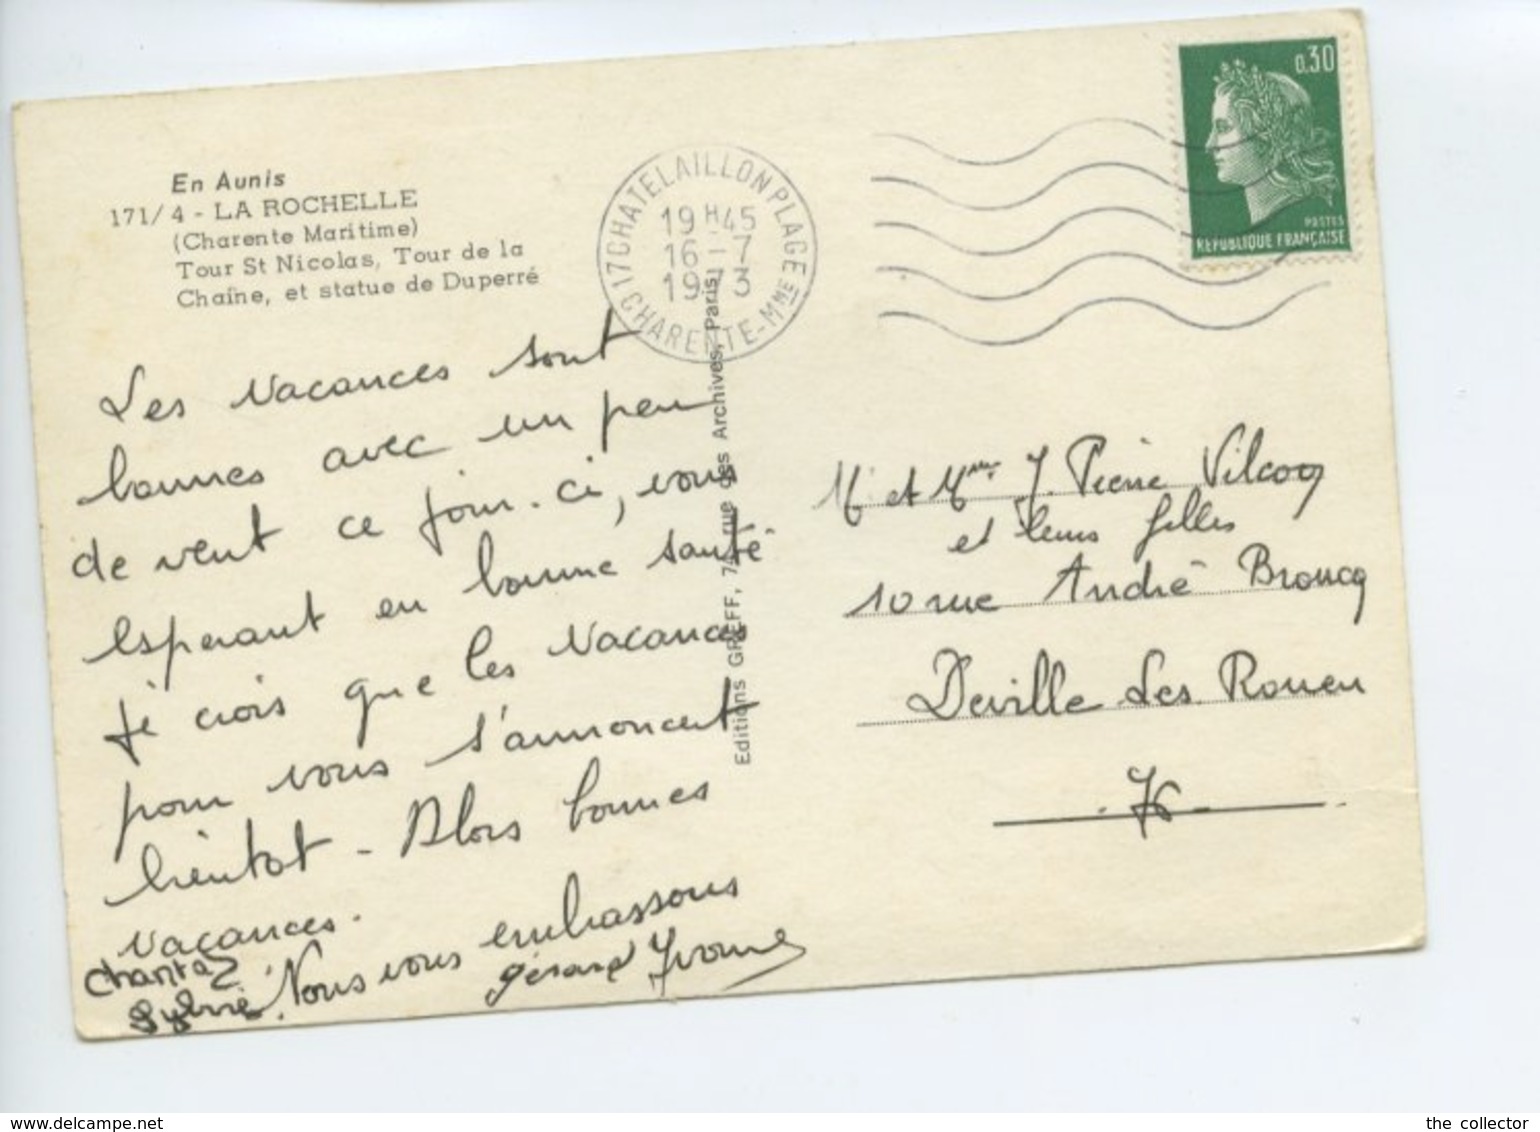 En Aunis
171/4 - LA ROCHELLE
(Charente Maritime)
Tour St Nicolas, Tour de la
Chaîne, et statue de Duperré
17 CHATELAILLON PLAGE
19H45
16 - 7
1973
CHARENTE-MME
0,30
POSTES
REPUBLIQUE FRANÇAISE
Les vacances sont
bonnes avec un peu
de vent ce jour-ci, vous
esperant en bonne santé
je crois que les vacances
pour vous s'annoncent
bientot - Alors bonnes
vacances.
Nous vous embrassons
Chantal
Sylvie
gérard Yvonne
Editions GREFF, rue des Archives, Paris
M et Mme J. Pierre Vilcocq
et leurs filles
10 rue André Broucq
Deville Les Rouen
76
www.delcampe.net
the collector